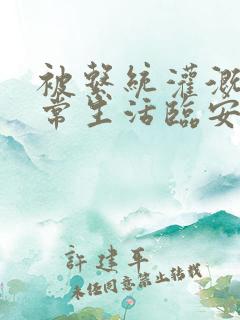 被繫統灌溉
常生活臨安
許建平
未經同意禁止轉載